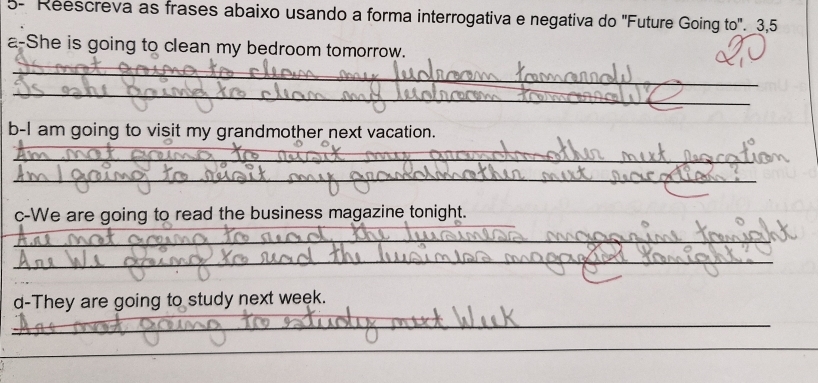 5- Reescreva as frases abaixo usando a forma interrogativa e negativa do "Future Going to". 3,5
2,0
a-She is going to clean my bedroom tomorrow.
Is not going to clean my bedroom tomorrow
Is she going to clean my bedroom tomorrow?
b-I am going to visit my grandmother next vacation.
Am not going to visit my grandmother next vacation
Am I going to visit my grandmother next vacation?
c-We are going to read the business magazine tonight.
Are not going to read the business magazine tonight
Are We going to read the business magazine tonight?
d-They are going to study next week.
Are not going to study next Week